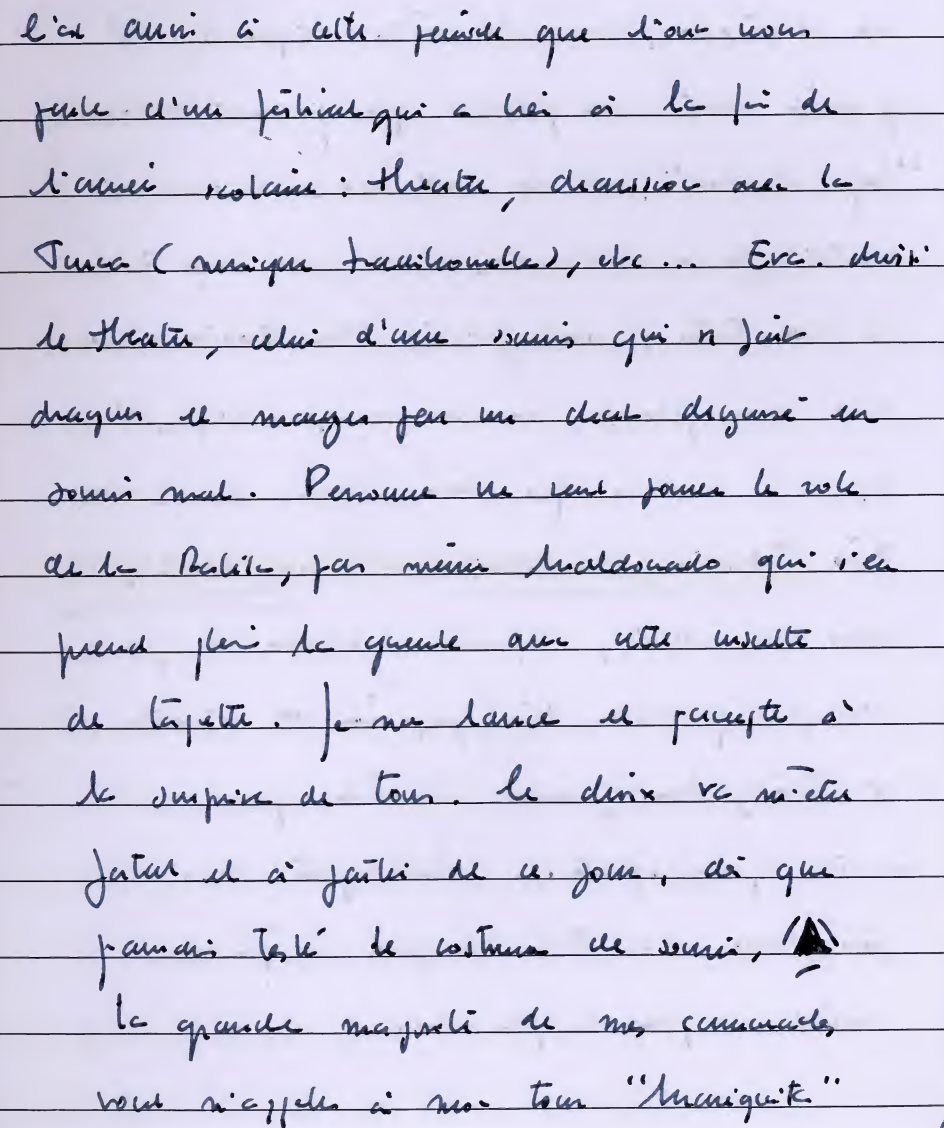 C'est aussi à cette période que l'on nous
parle d'un festival qui a lieu à la fin de
l'année scolaire : theatre, chansons avec la
Tuna (musique traditionnelle), etc... Eva choisi
le theatre, celui d'une souris qui se fait
draguer et manger par un chat déguisé en
souris mal. Personne ne veut jouer le role
de la Ratita, pas même Maldonado qui s'en
prend plein la gueule avec cette insulte
de tapette. Je me lance et j'accepte à
la surprise de tous. Ce choix va m'être
fatal et à partir de ce jour, dès que
j'aurais testé le costume de souris,
la grande majorité de mes camarades
vont m'appeler à mon tour "Mariquita"